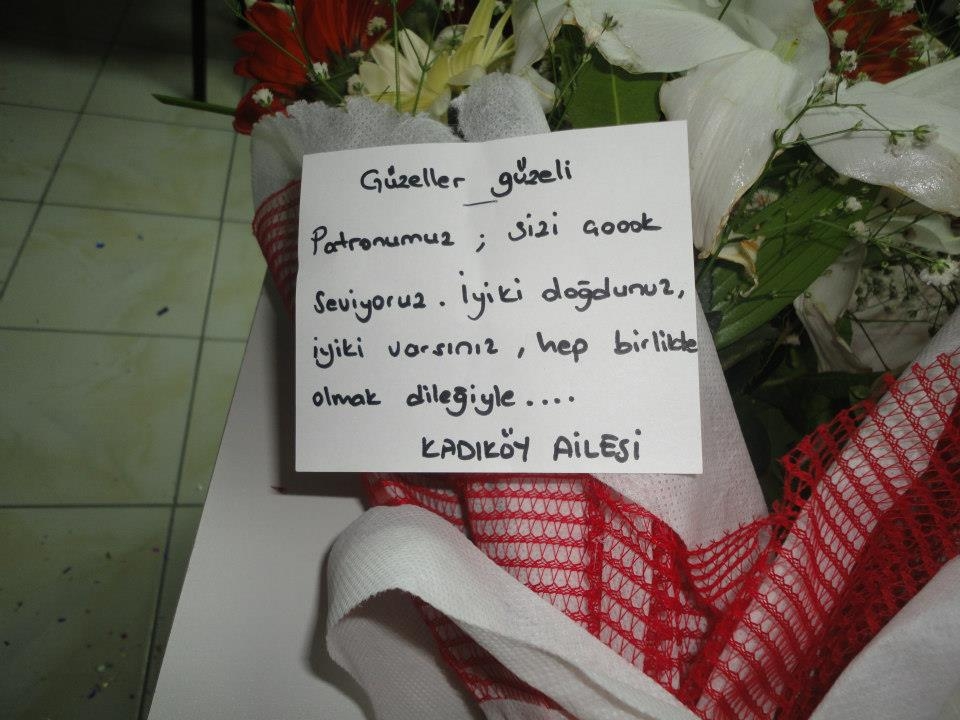 Güzeller güzeli
Patronumuz ; sizi çoook
seviyoruz. İyiki doğdunuz,
iyiki varsınız , hep birlikte
olmak dileğiyle....
KADIKÖY AİLESİ